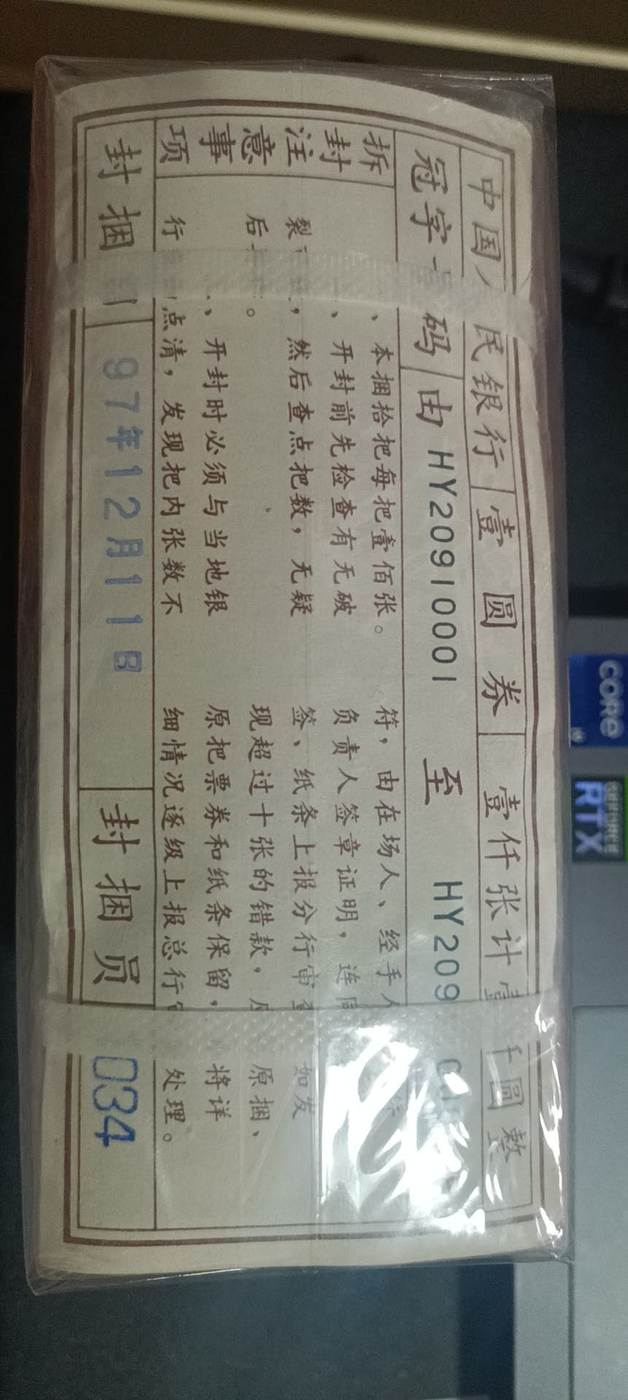 中国人民银行 壹圆券 壹仟张计壹仟圆整
冠字号码 由 HY20910001 至 HY209
拆封注意事项
、本捆拾把每把壹佰张。
、开封前先检查有无破
裂，然后查点把数，无疑
后。
、开封时必须与当地银
行点清，发现把内张数不
符，由在场人、经手人
负责人签章证明，连同
签、纸条上报分行审查 如发
现超过十张的错款，应 原捆、
原把票券和纸条保留，将详
细情况逐级上报总行 处理。
封捆 97年12月11日 封捆员 034
CORe
GEFORCE
RTX